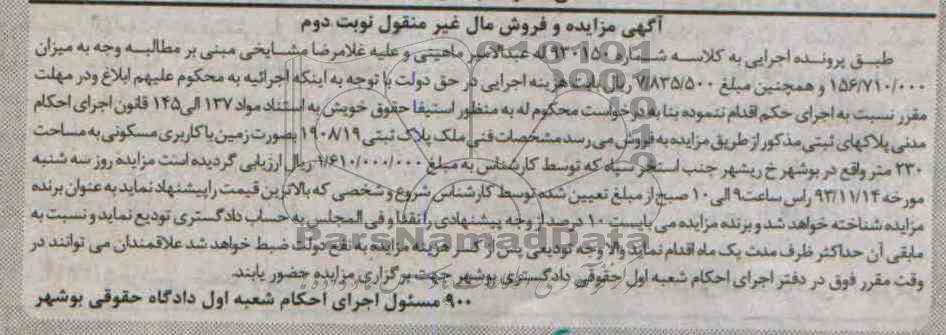 آگهی مزایده و فروش مال غیر منقول نوبت دوم
طبق پرونده اجرایی به کلاسه شماره ۹۳۰۱۵۰ له عبدالامیر ماهینی و علیه غلامرضا مشایخی مبنی بر مطالبه وجه به میزان
۱۵۶/۷۱۰/۰۰۰ و همچنین مبلغ ۷/۸۳۵/۵۰۰ ریال بابت هزینه اجرایی در حق دولت با توجه به اینکه اجرائیه به محکوم علیهم ابلاغ ودر مهلت
مقرر نسبت به اجرای حکم اقدام ننموده بنا به درخواست محکوم له به منظور استیفا حقوق خویش به استناد مواد ۱۳۷ الی ۱۴۵ قانون اجرای احکام
مدنی پلاکهای ثبتی مذکور از طریق مزایده به فروش می رسد مشخصات فنی ملک پلاک ثبتی ۱۹۰۸/۱۹ بصورت زمین با کاربری مسکونی به مساحت
۲۳۰ متر واقع در بوشهر خ ریشهر جنب استخر سپاه که توسط کارشناس به مبلغ ۱/۶۱۰/۰۰۰/۰۰۰ ریال ارزیابی گردیده است مزایده روز سه شنبه
مورخه ۹۳/۱۱/۱۴ راس ساعت ۹ الی ۱۰ صبح از مبلغ تعیین شده توسط کارشناس شروع و شخصی که بالاترین قیمت را پیشنهاد نماید به عنوان برنده
مزایده شناخته خواهد شد و برنده مزایده می بایست ۱۰ درصد از وجه پیشنهادی را نقدا و فی المجلس به حساب دادگستری تودیع نماید و نسبت به
مابقی آن حداکثر ظرف مدت یک ماه اقدام نماید والا وجه تودیعی پس از کسر هزینه مزایده به نفع دولت ضبط خواهد شد علاقمندان می توانند در
وقت مقرر فوق در دفتر اجرای احکام شعبه اول حقوقی دادگستری بوشهر جهت برگزاری مزایده حضور یابند.
۹۰۰ مسئول اجرای احکام شعبه اول دادگاه حقوقی بوشهر
ParsNamadData